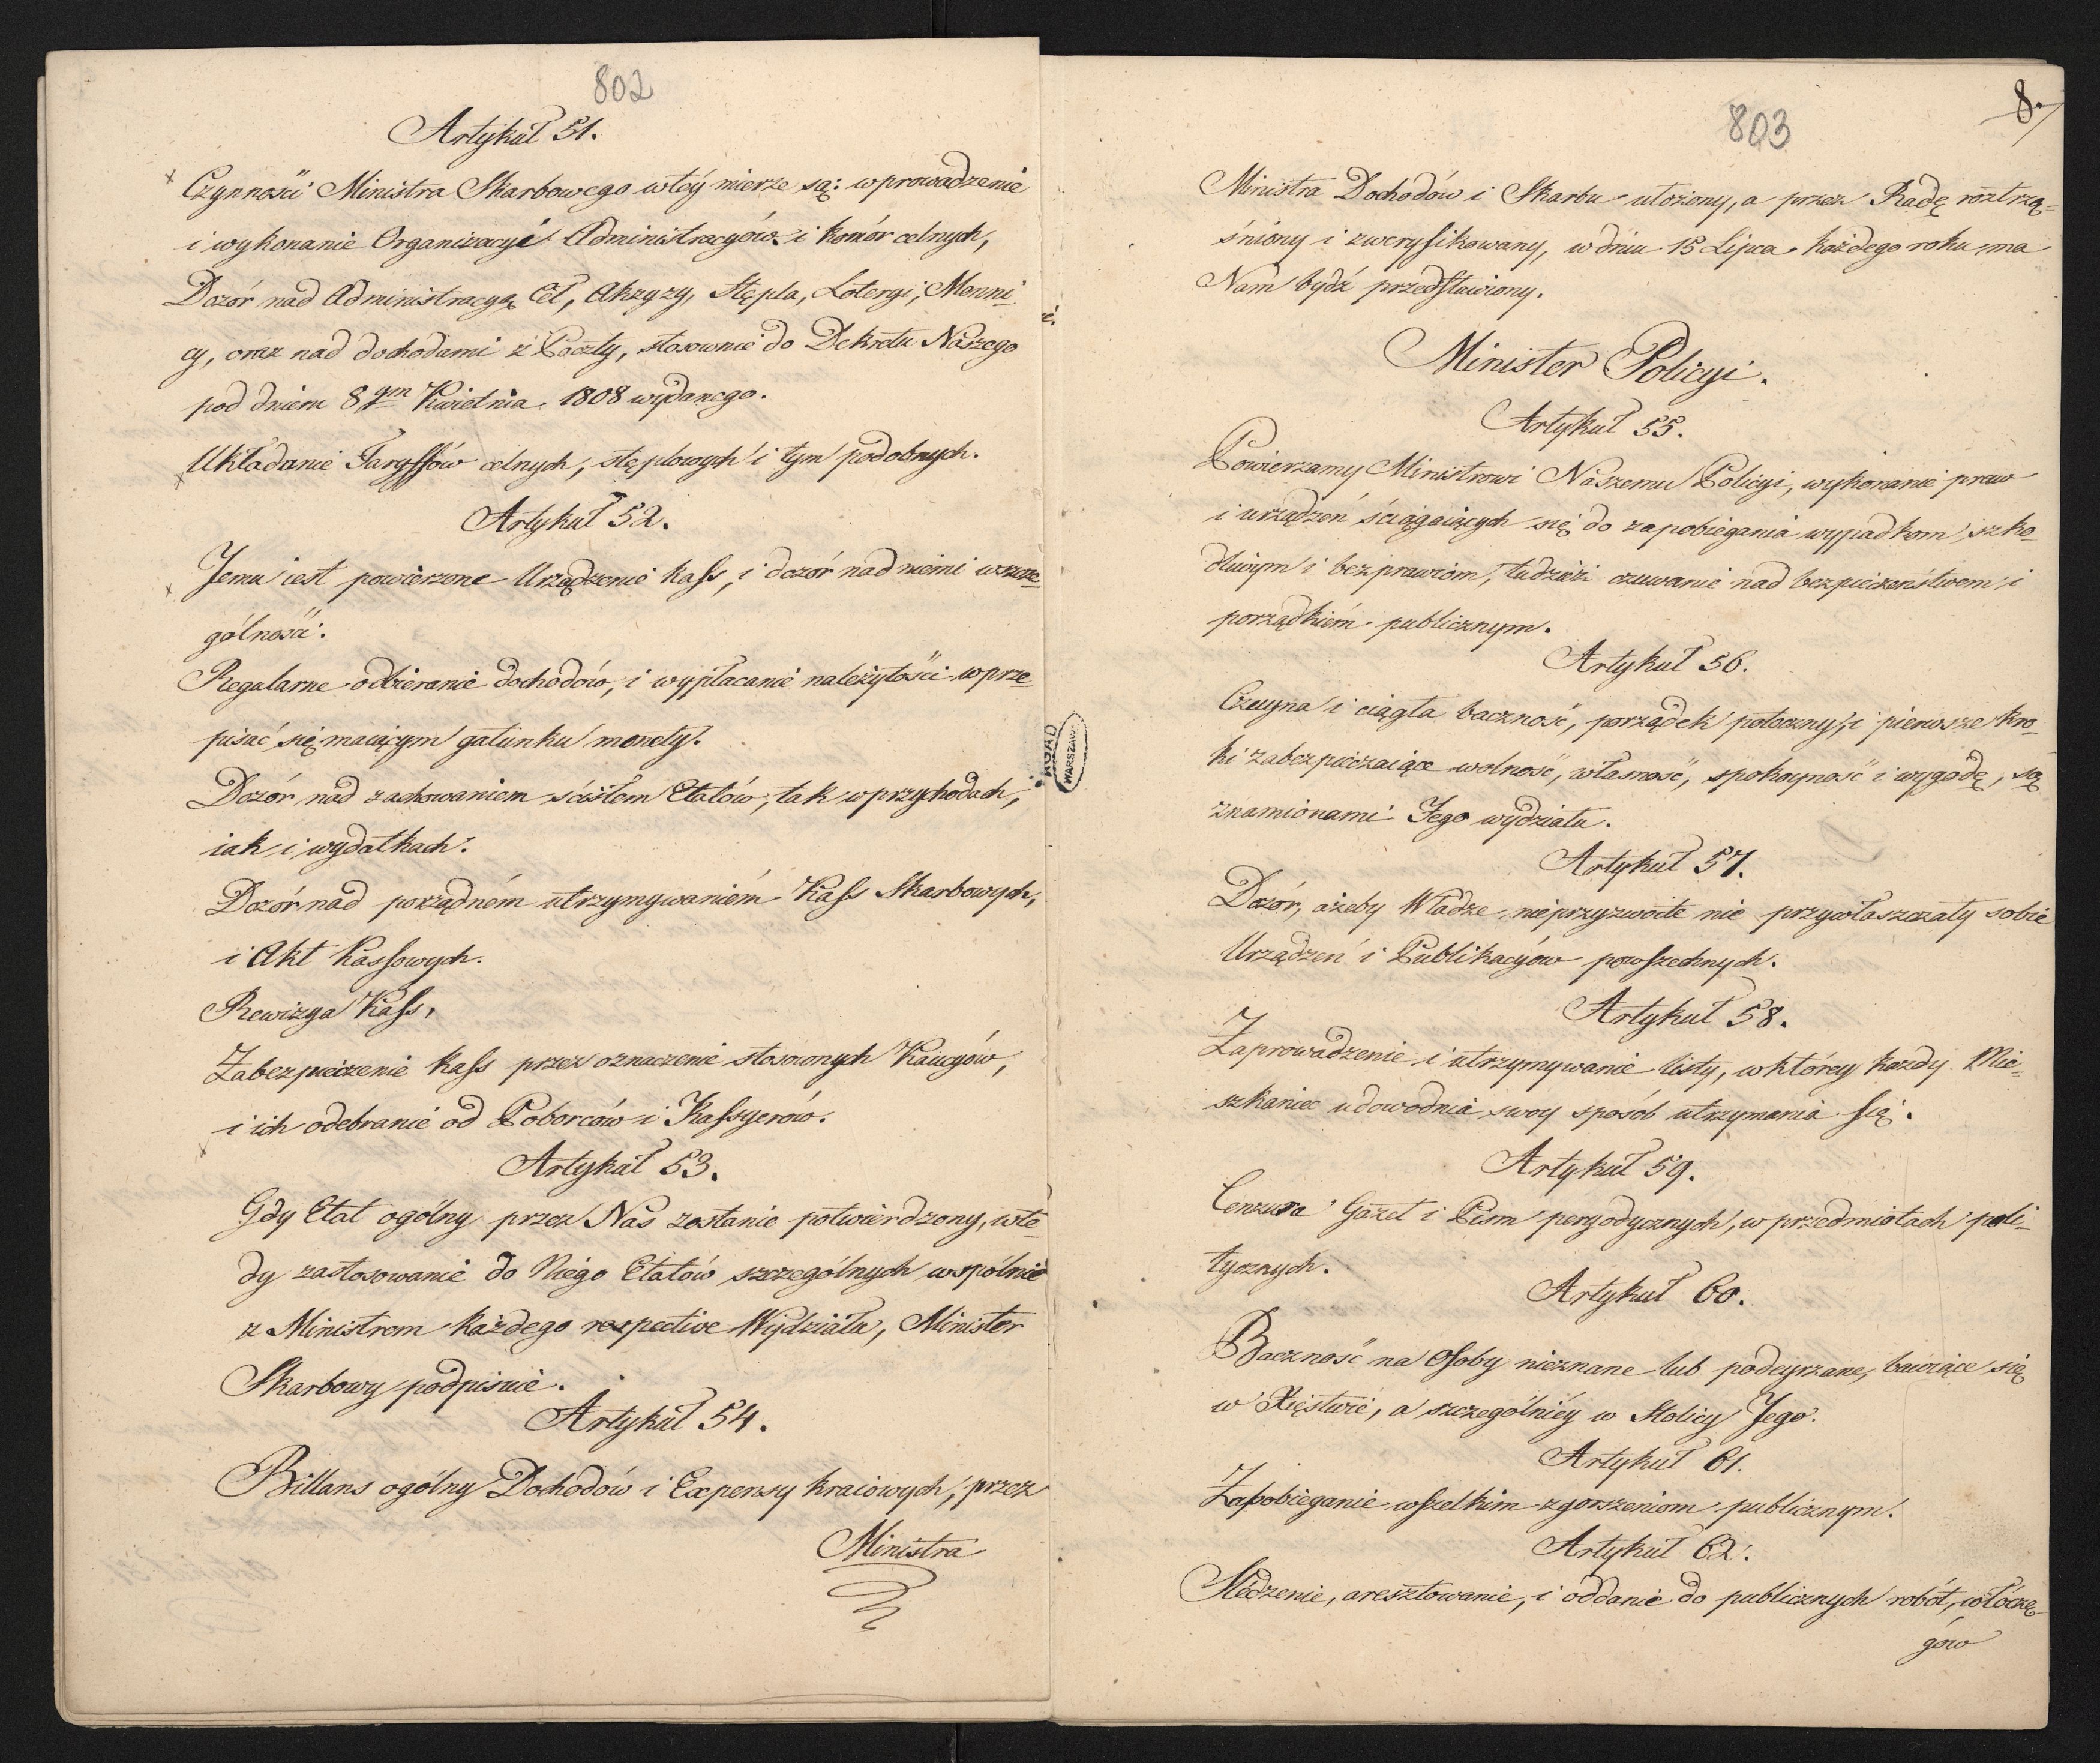 802
Artykuł 51.
Czynności Ministra Skarbowego wtéy mierze są: wprowadzenie
i wykonanie Organizacyi Administracyów i komór celnych,
Dozór nad Administracyą Ceł, Akzyzy, Stępla, Loteryi, Menni
cy, oraz nad dochodami z Poczty, stosownie do Dekretu Naszego
pod dniem 8ym Kwietnia 1808 wydanego.
Układanie Taryffów celnych, stęplowych i tym podobnych.
Artykuł 52.
Jemu iest powierzone Urządzenie kass, i dozór nad niemi wszcze-
gólności:
Regularne odbieranie dochodów, i wypłacanie należytości wprze-
pisać się maiącym gatunku monety.
Dozór nad zachowaniem ścisłem Etatów, tak w przychodach,
iak i wydatkach.
Dozór nad porządném utrzymywaniém Kass Skarbowych,
i Akt Kassowych.
Rewizya Kass,
Zabezpieczenie kass przez oznaczenie stosownych Kaucyów,
i ich odebranie od Poborców i Kassyerów.
Artykuł 53.
Gdy Etat ogólny przez Nas zostanie potwierdzony, wte-
dy zastosowanie do Niego Etatów szczególnych wspólnie
z Ministrem każdego respective Wydziału, Minister
Skarbowy podpisuie.
Artykuł 54.
Billans ogólny Dochodów i Expensy kraiowych, przez
Ministra
803
8.
Ministra Dochodów i Skarbu ułożony, a przez Radę roztrzą-
śniony i zweryfikowany, w dniu 15 Lipca każdego roku, ma
Nam bydź przedstawiony.
Minister Policyi.
Artykuł 55.
Powierzamy Ministrowi Naszemu Policyi, wykonanie praw
i urządzeń ściągaiących się do zapobiegania wypadkom, szko-
dliwym i bezprawiom, tudzież czuwanie nad bezpieczeństwem i
porządkiém publicznym.
Artykuł 56.
Czuyna i ciągła baczność, porządek potoczny, i pierwsze kro-
ki zabezpieczaiące wolność, własność, spokoyność i wygodę, są
znamionami Jego wydziału.
Artykuł 57.
Dozór, ażeby Władze nieprzyzwoite nie przywłaszczały sobie
Urządzeń i Publikacyów powszechnych.
Artykuł 58.
Zaprowadzenie i utrzymywanie listy, w którey każdy Mie-
szkaniec udowodnia swoy sposób utrzymania się.
Artykuł 59.
Cenzura Gazet i Pism peryodycznych, w przedmiotach poli-
tycznych.
Artykuł 60.
Baczność na Osoby nieznane lub podeyrzane, bawiące się
w Xięstwie, a szczególniéy w Stolicy Jego.
Artykuł 61.
Zapobieganie wszelkim zgorszeniom publicznym.
Artykuł 62.
Śledzenie, aresztowanie, i oddanie do publicznych robót, włóczę-
gów
WARSZAW